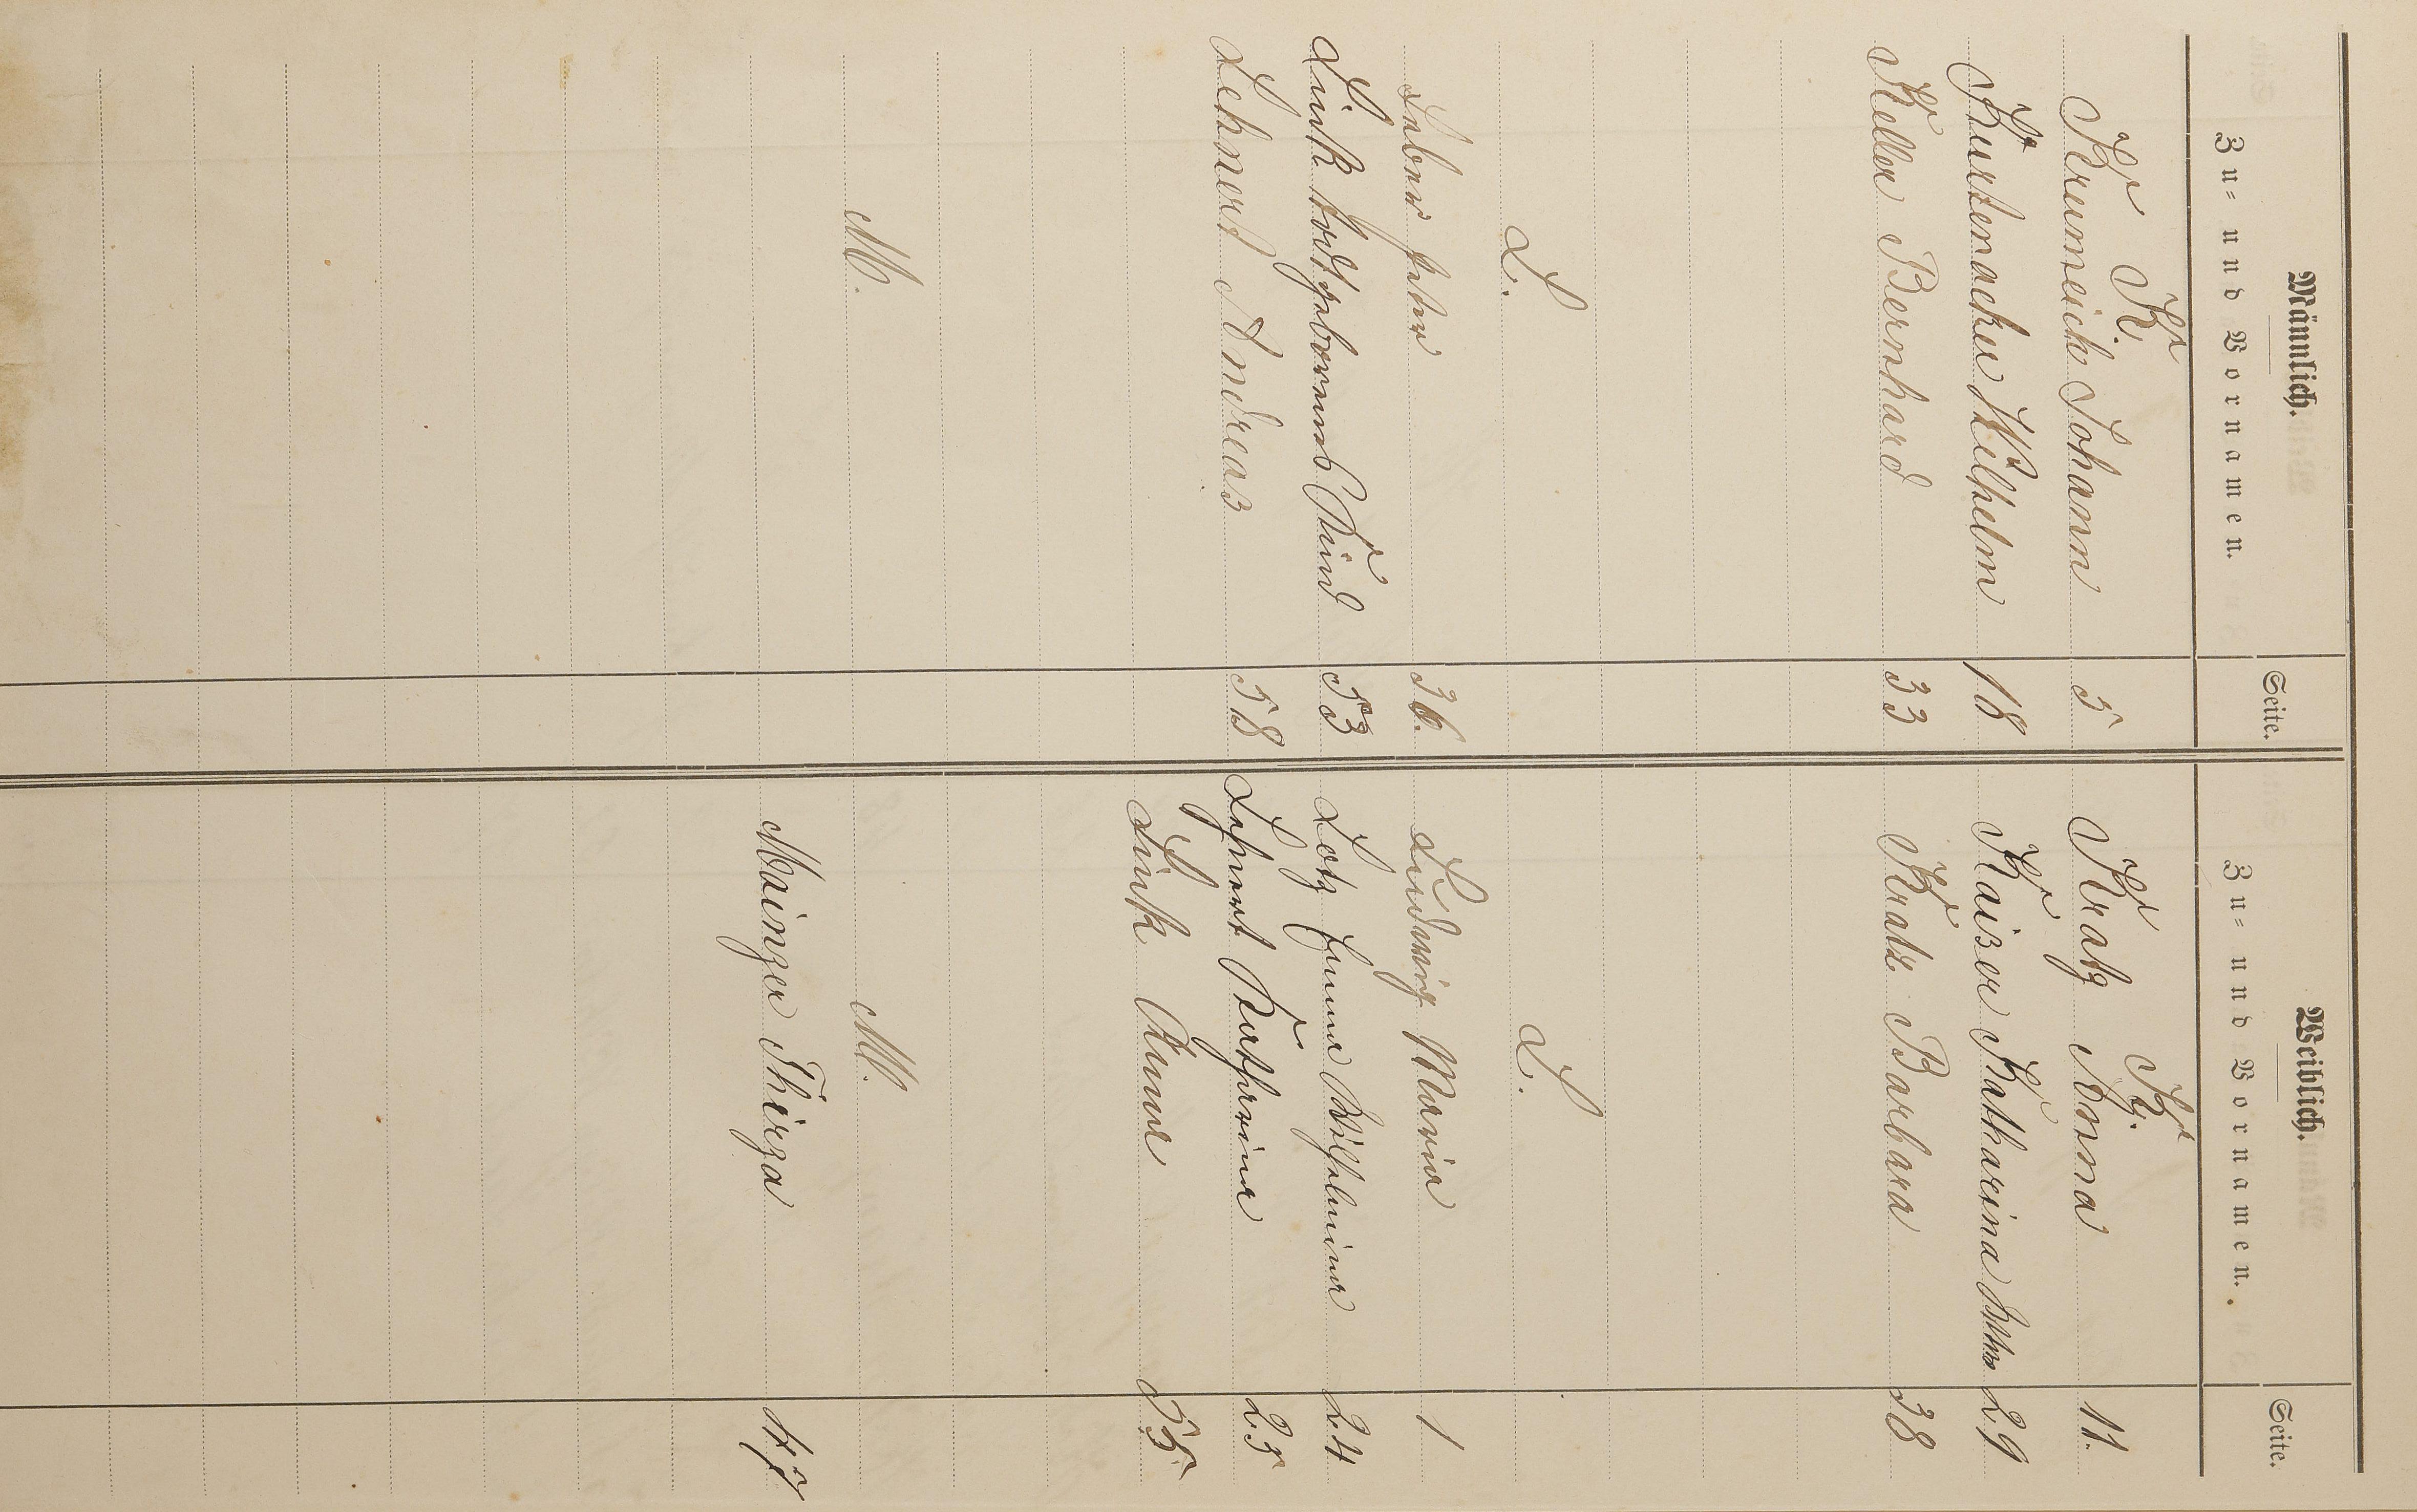 Männlich.
Zu= und Vornamen.
Seite.
K.
Krumeich Johann 5
Kurtenacker Wilhelm 18
Keller Bernhard 33
L.
Leber Peter 36.
Link todtgeborenes Kind 53
Lehnert Andreas 58
M.
Weiblich.
Zu= und Vornamen.
Seite.
K.
Kratz Anna 11.
Kaiser Katharina 29
Kratz Barbara 38
L.
Ludwig Maria 1
Lotz Emma Wilhelmine 24
Lehnert Katharina 25
Link Anna 55
M.
Mainzer Thirza 47